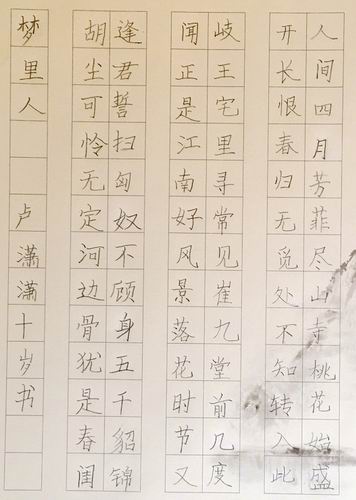 人间四月芳菲尽山寺桃花始盛
开长恨春归无觅处不知转入此
岐王宅里寻常见崔九堂前几度
闻正是江南好风景落花时节又
逢君誓扫匈奴不顾身五千貂锦
胡尘可怜无定河边骨犹是春闺
梦里人 卢潇潇十岁书